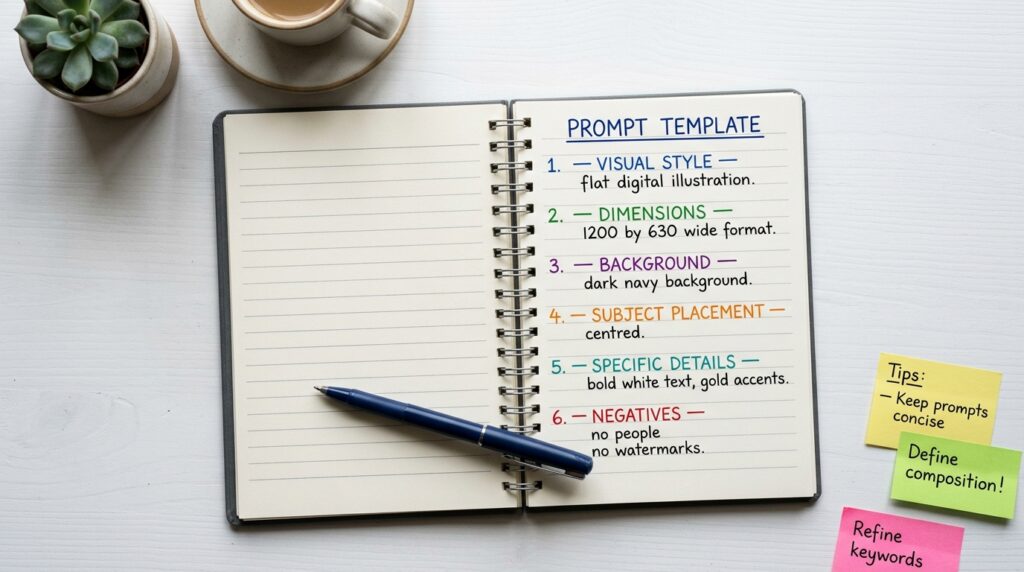 PROMPT TEMPLATE
1. — VISUAL STYLE —
flat digital illustration.
2. — DIMENSIONS —
1200 by 630 wide format.
3. — BACKGROUND —
dark navy background.
4. — SUBJECT PLACEMENT —
centred.
5. — SPECIFIC DETAILS —
bold white text, gold accents.
6. — NEGATIVES —
no people
no watermarks.
Tips:
– Keep prompts
concise
Define
composition!
Refine
keywords